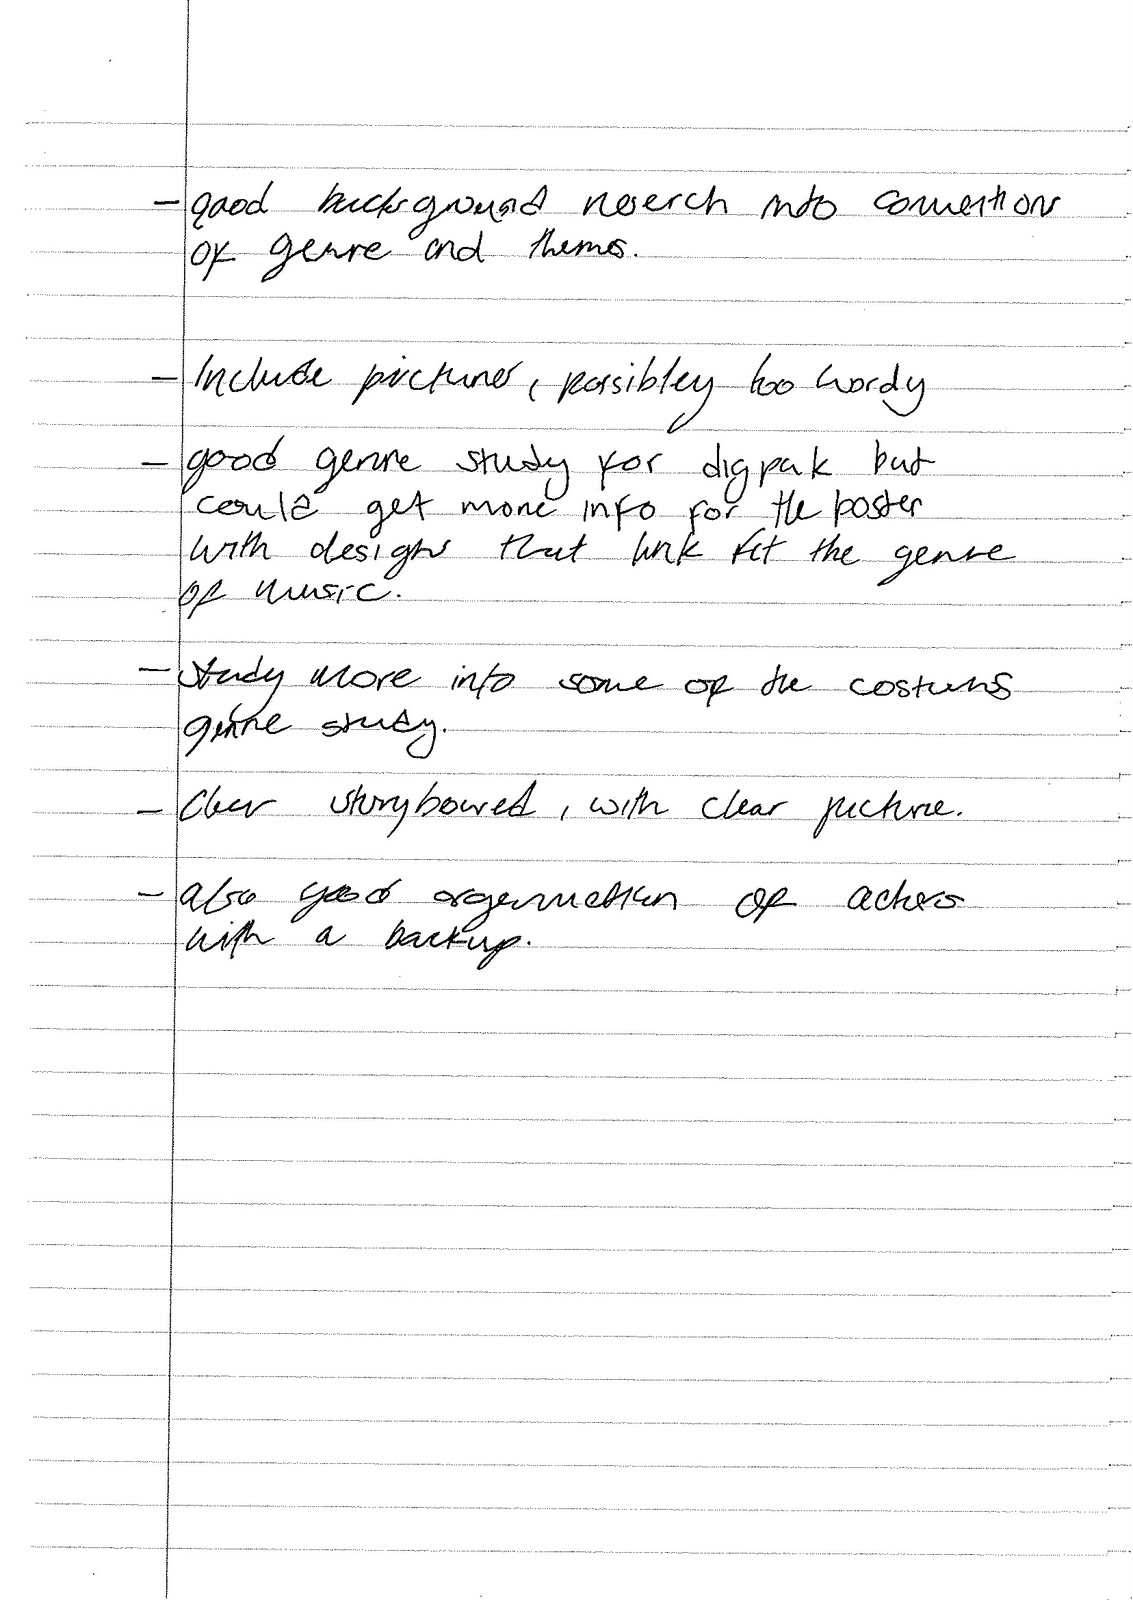 - good background reserch into convention
of genre and themes.
- Include pictures, possibley too wordy
- good genre study for digpak but
could get more info for the poster
with designs that link fit the genre
of music.
- study more into some of the costums
genre study.
- Clear storyboured, with clear picture.
- also good organisation of actors
with a backup.